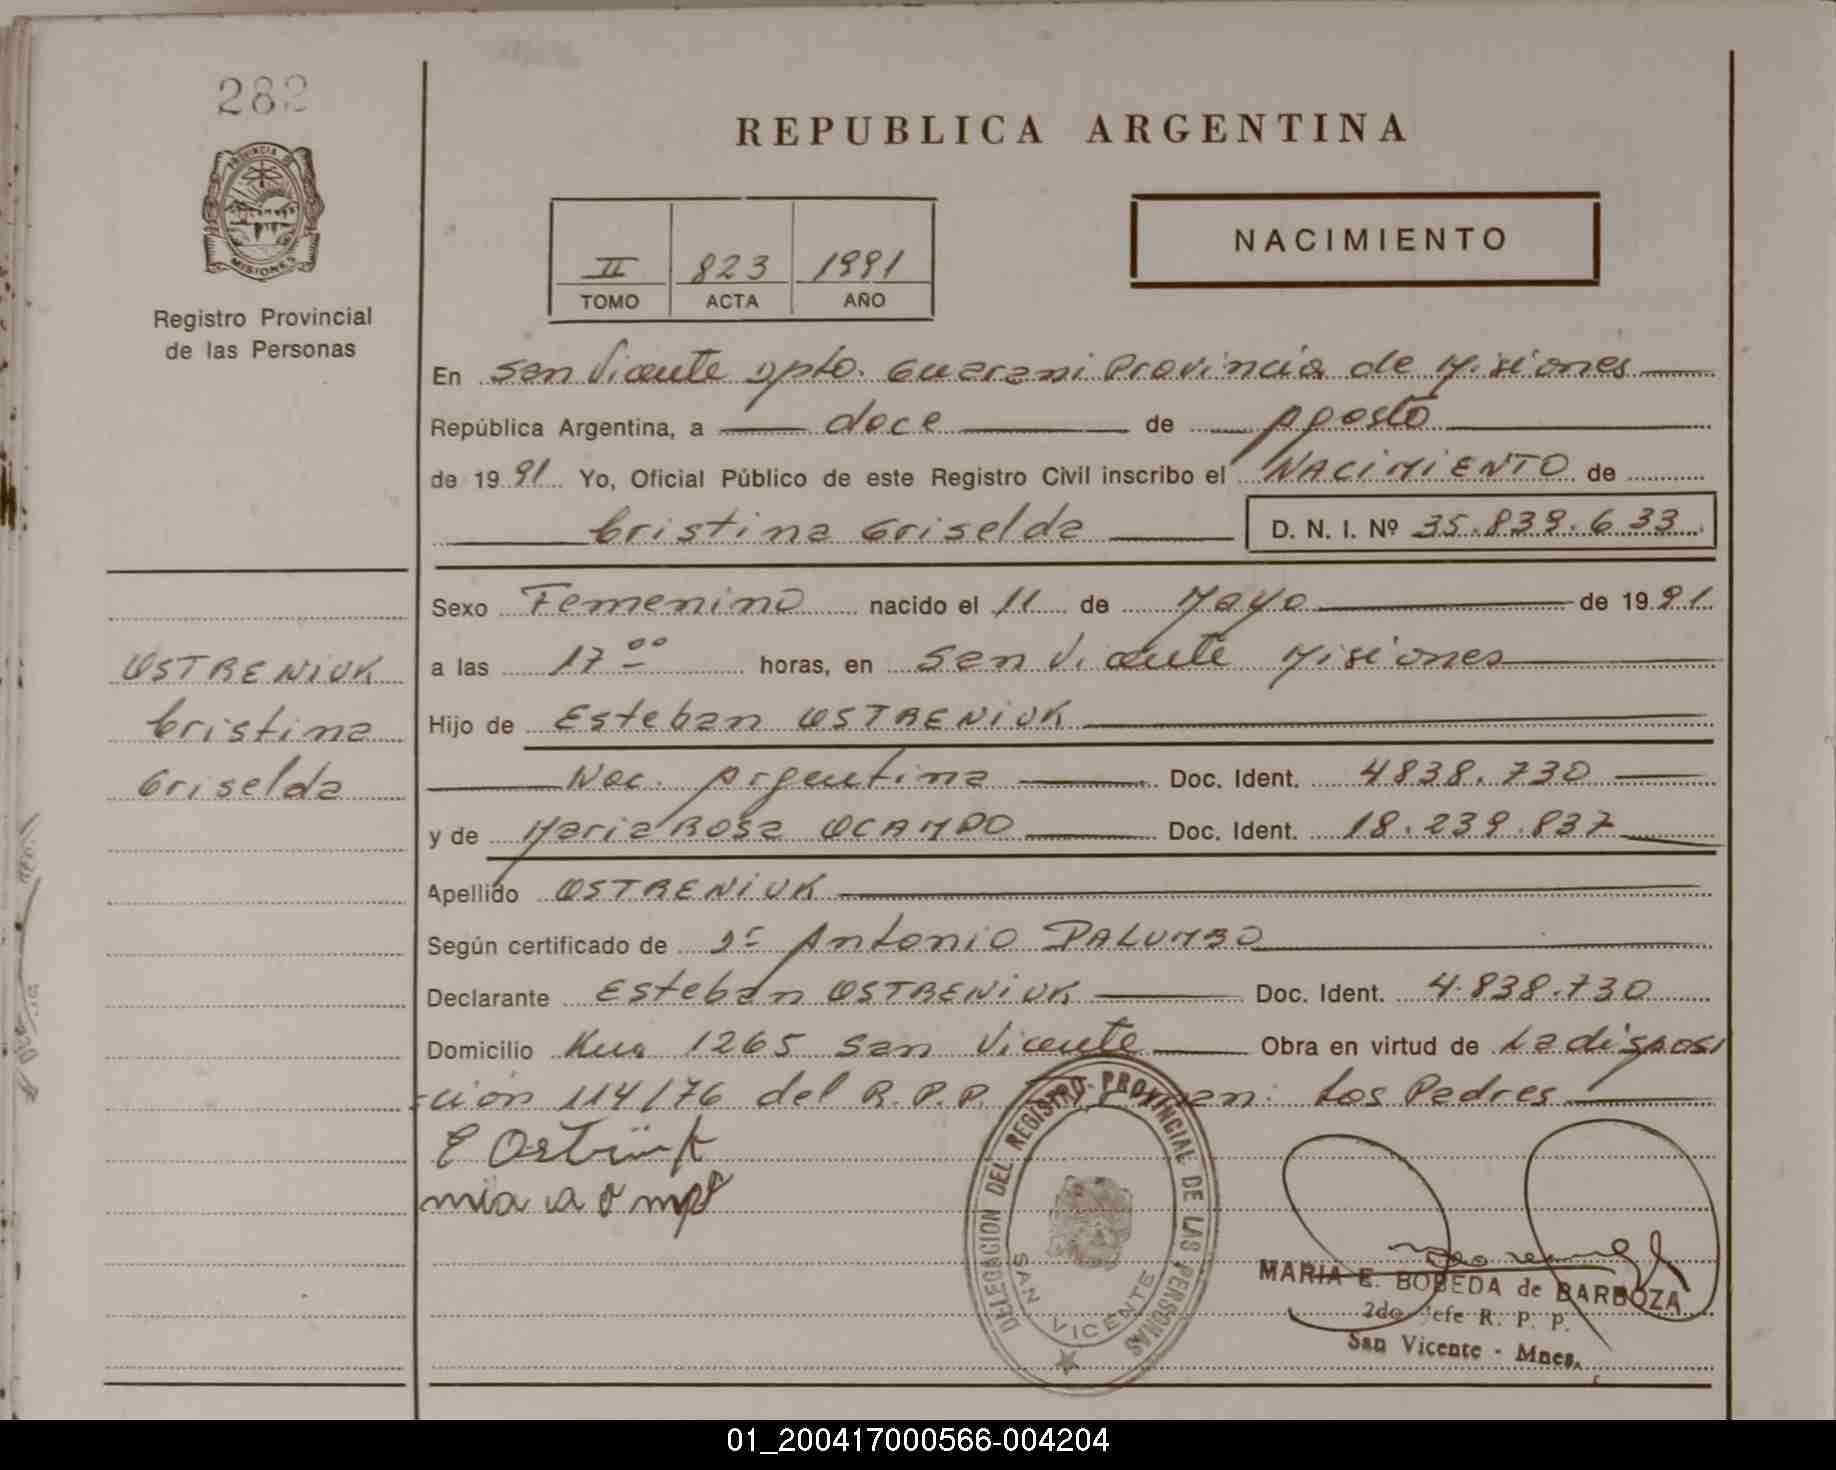 282
PROVINCIA DE
MISIONES
Registro Provincial
de las Personas
REPUBLICA ARGENTINA
II 823 1991
TOMO ACTA AÑO
NACIMIENTO
En San Vicente Dpto. Guarani Provincia de Misiones
República Argentina, a doce de Agosto
de 1991 Yo, Oficial Público de este Registro Civil inscribo el NACIMIENTO de
Cristina Griselda D. N. I. Nº 35.839.633
Sexo Femenino nacido el 11 de Mayo de 1991
a las 17 00 horas, en San Vicente Misiones
Hijo de Esteban OSTRENIUK
Nac. Argentina Doc. Ident. 4838.730
y de Maria Rosa OCAMPO Doc. Ident. 18.239.837
Apellido OSTRENIUK
Según certificado de Dr Antonio PALUMBO
Declarante Esteban OSTRENIUK Doc. Ident. 4.838.730
Domicilio Km 1265 San Vicente Obra en virtud de La disposi
ción 114/76 del R.P.P. Firman: Los Padres
OSTRENIUK
Cristina
Griselda
DELEGACION DEL REGISTRO PROVINCIAL DE LAS PERSONAS
SAN VICENTE
MARIA E. BOBEDA de BARBOZA
2do Jefe R. P. P.
San Vicente - Mnes.
01_200417000566-004204